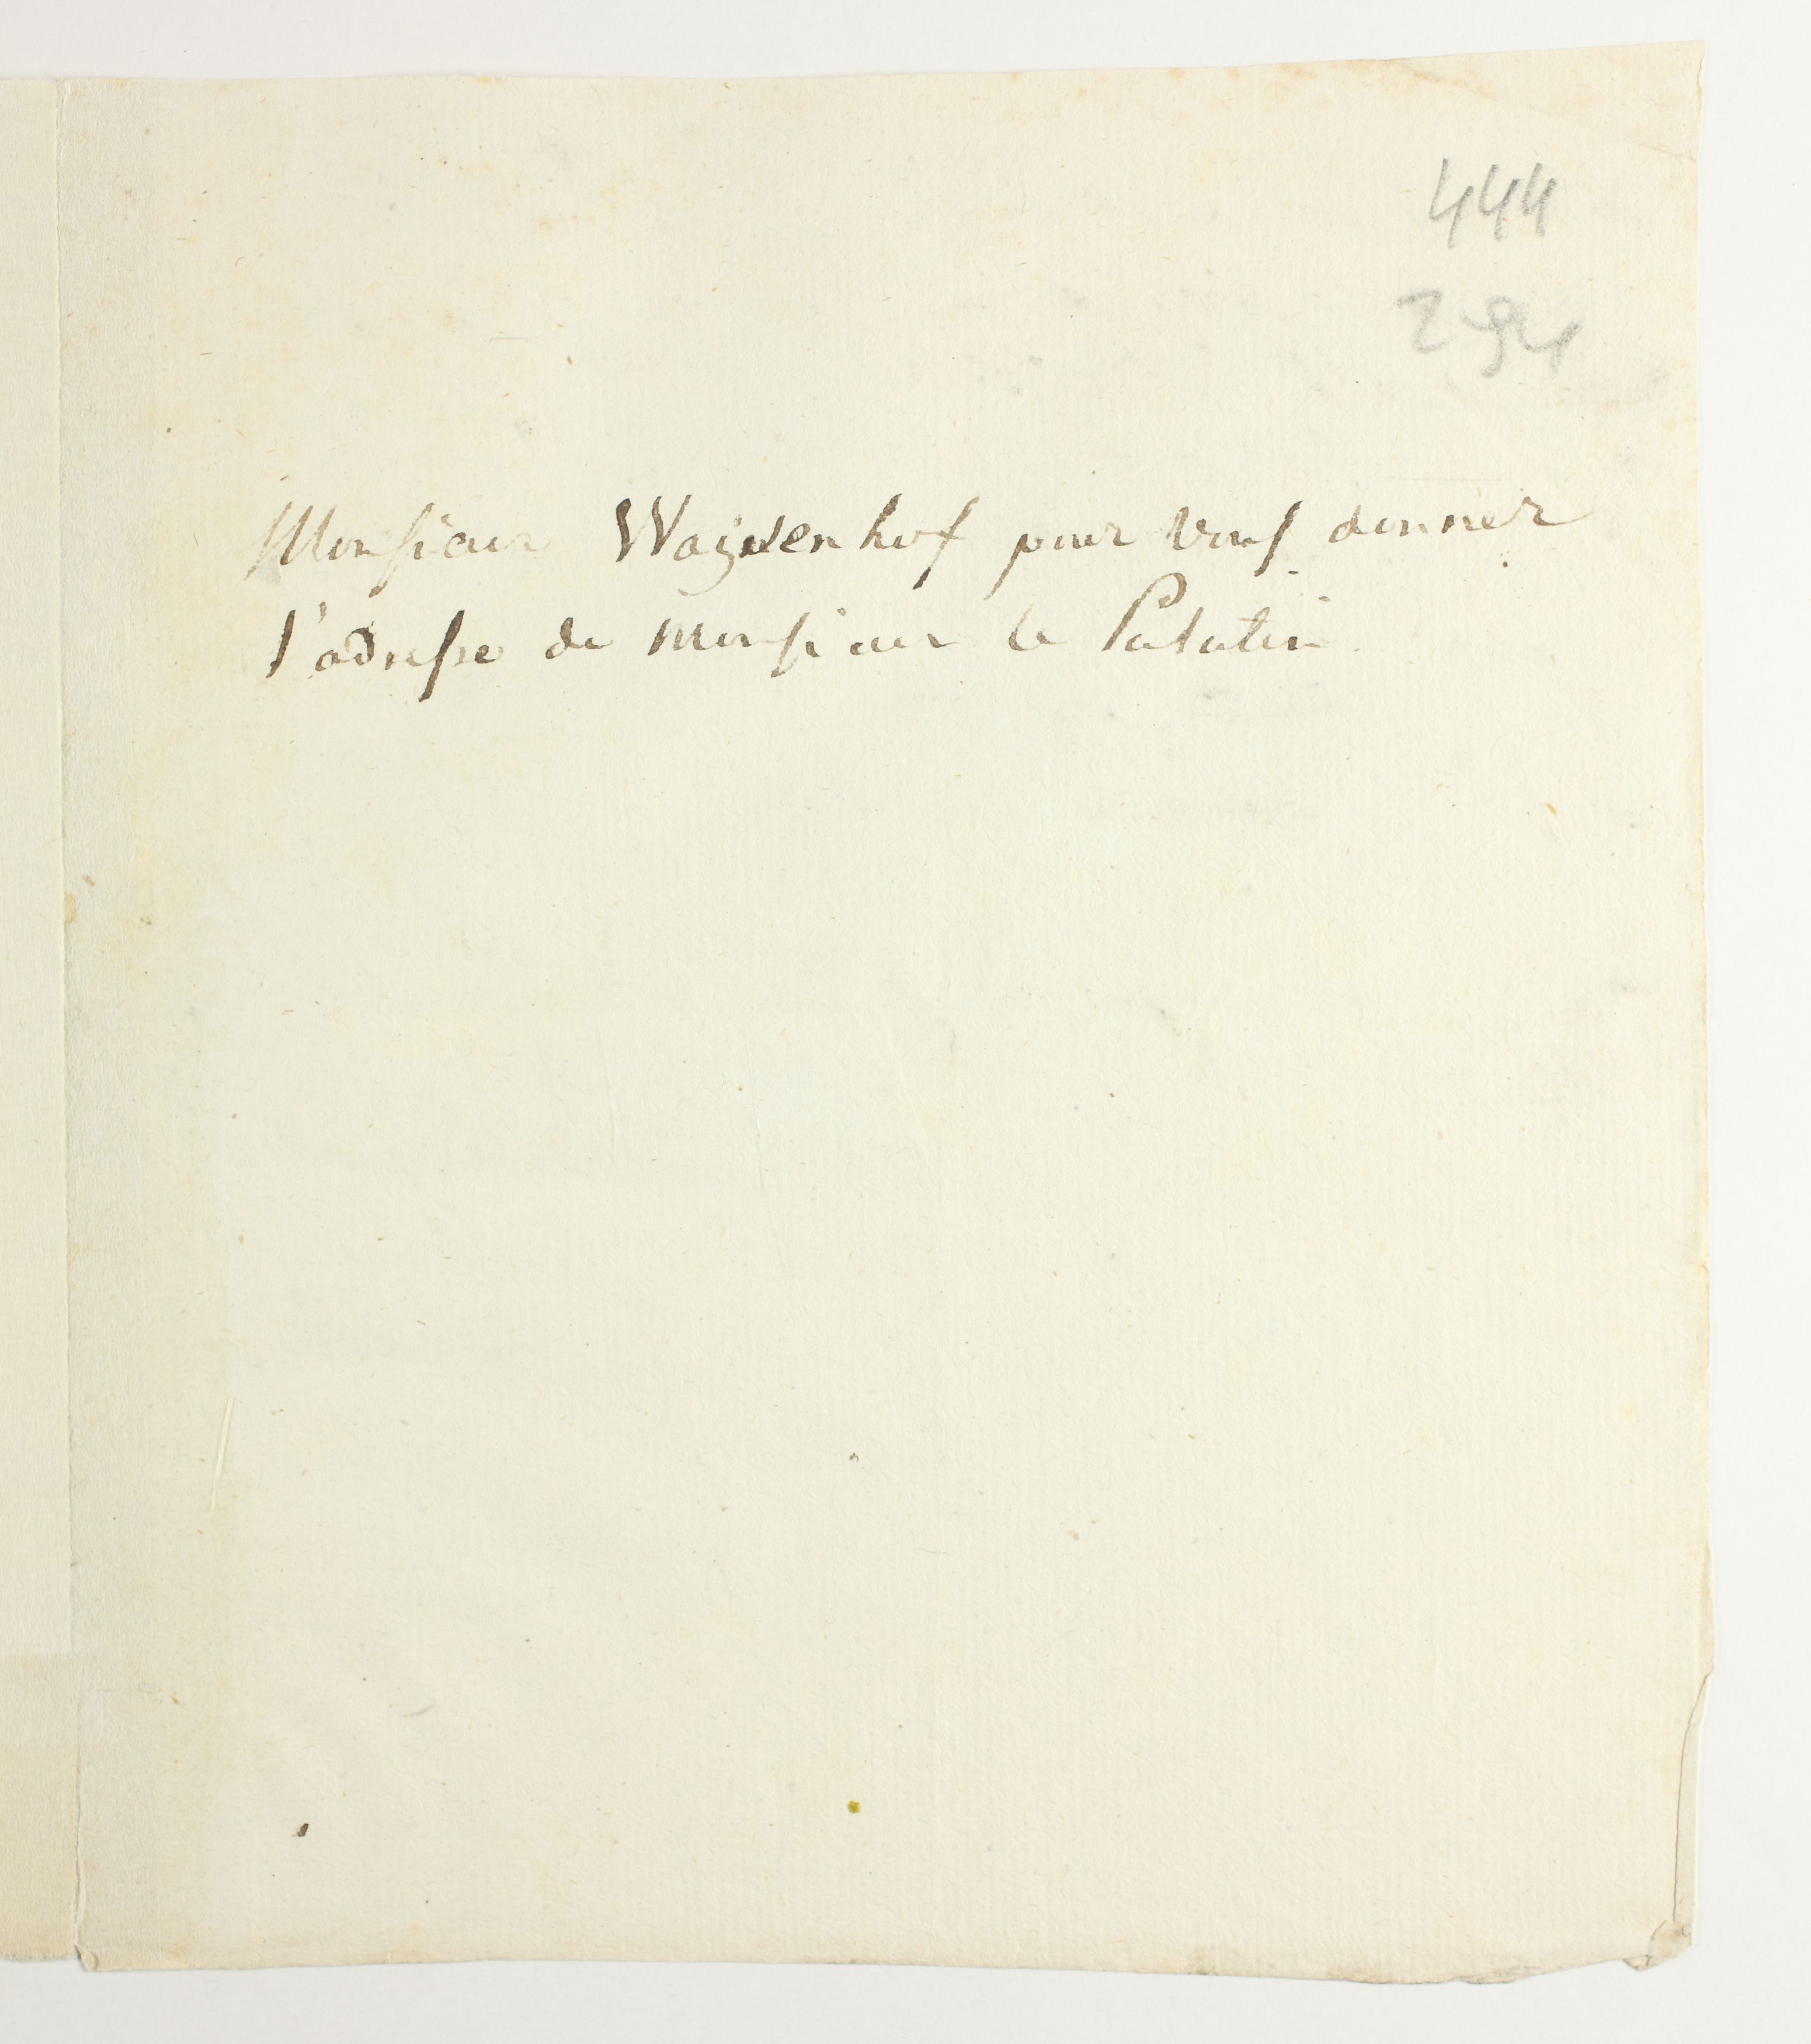 444
294
Monsieur Waywenhof pour vous donner
l'adresse de Monsieur le Palatin